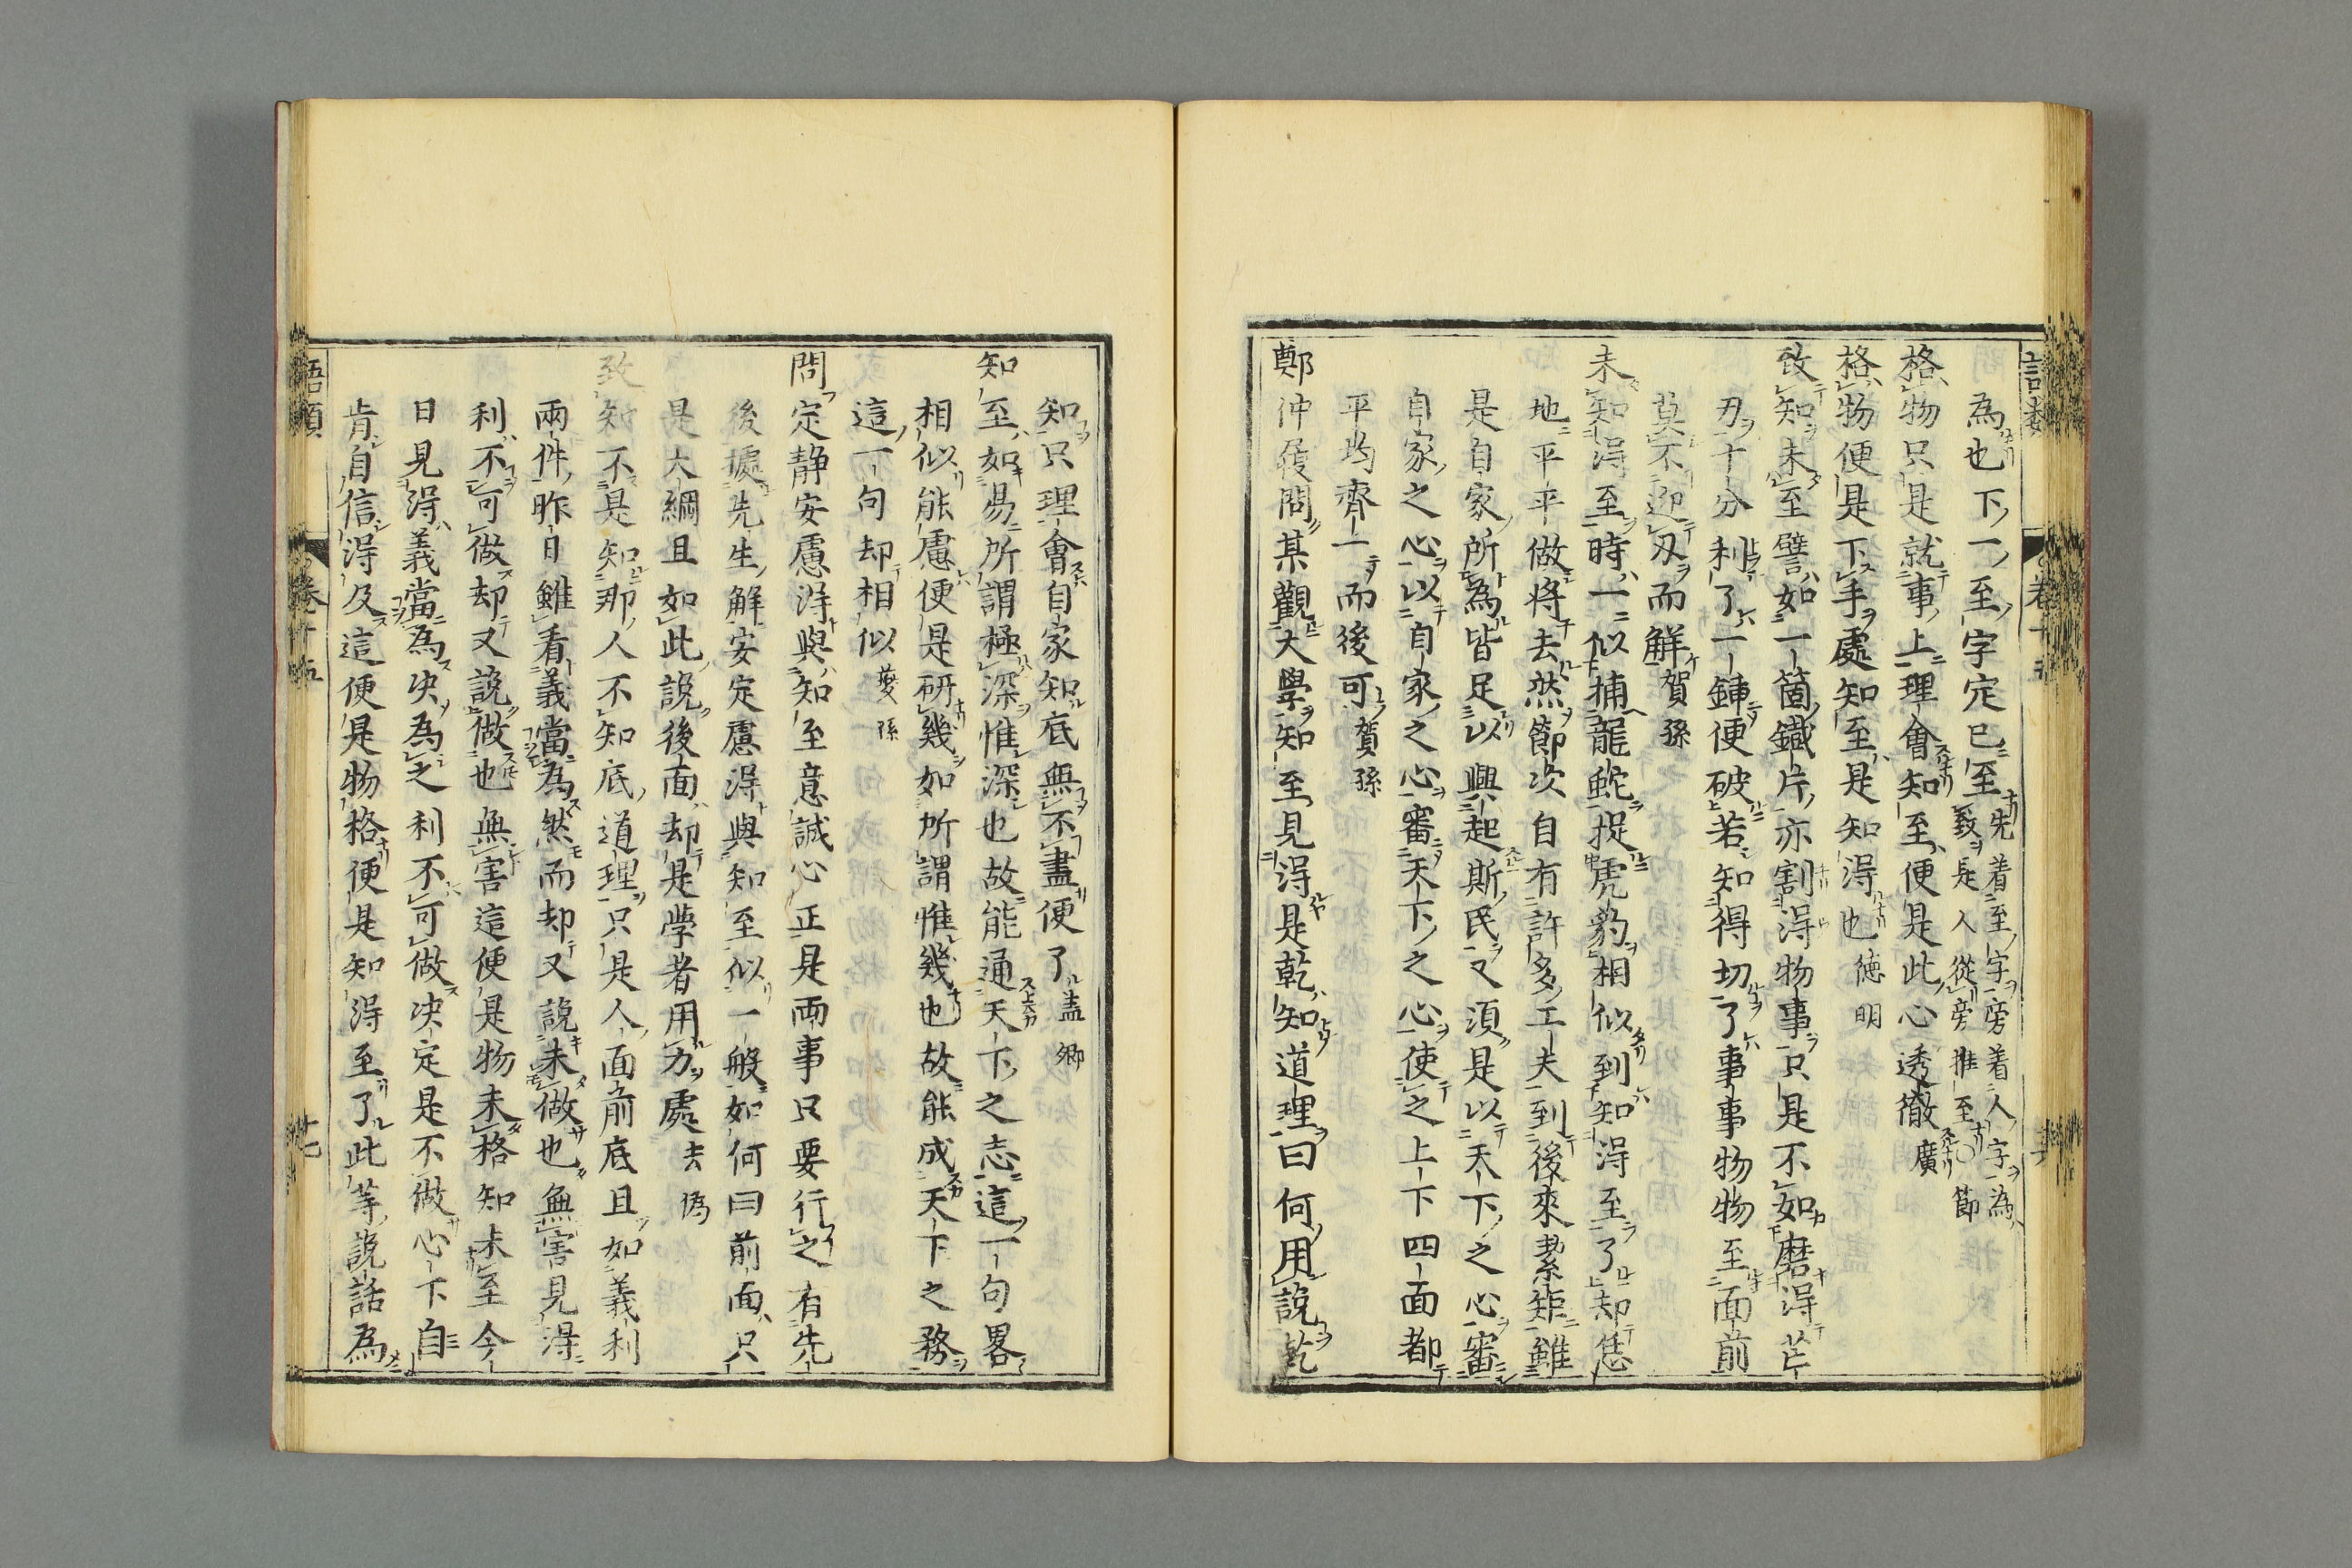 為也下一至字定已至先着至字旁着人字為
致是人從旁推至〇節
格物只是就事上理會知至便是此心透徹廣
格物便是下手處知至是知得也德明
致知未至譬如一箇鐵片亦割得物事只是不如磨得芒
刃十分利了一鍤便破若知得切了事事物物至面前
莫不迎刃而解賀孫
未知得至時一似捕龍蛇捉虎豹相似到知得至了却恁
地平平做將去然節次自有許多工夫到後來絜矩雖
是自家所為皆足以興起斯民又須是以天下之心審
自家之心以自家之心審天下之心使之上下四面都
平均齊一而後可賀孫
鄭仲履問某觀大學知至見得是乾知道理曰何用說乾
知只理會自家知底無不盡便了盖卿
知至如易所謂極深惟深也故能通天下之志這一句畧
相似能慮便是研幾如所謂惟幾也故能成天下之務
這一句却相似夔孫
問定静安慮得與知至意誠心正是兩事只要行之有先
後據先生解安定慮得與知至似一般如何曰前面只
是大綱且如此說後面却是學者用力處去偽
致知不是知那人不知底道理只是人面前底且如義利
兩件昨日雖看義當為然而却又說未做也無害見得
利不可做却又說做也無害這便是物未格知未至今
日見得義當為决為之利不可做决定是不做心下自
肯自信得及這便是物格便是知得至了此等說話為
語類
卷十五